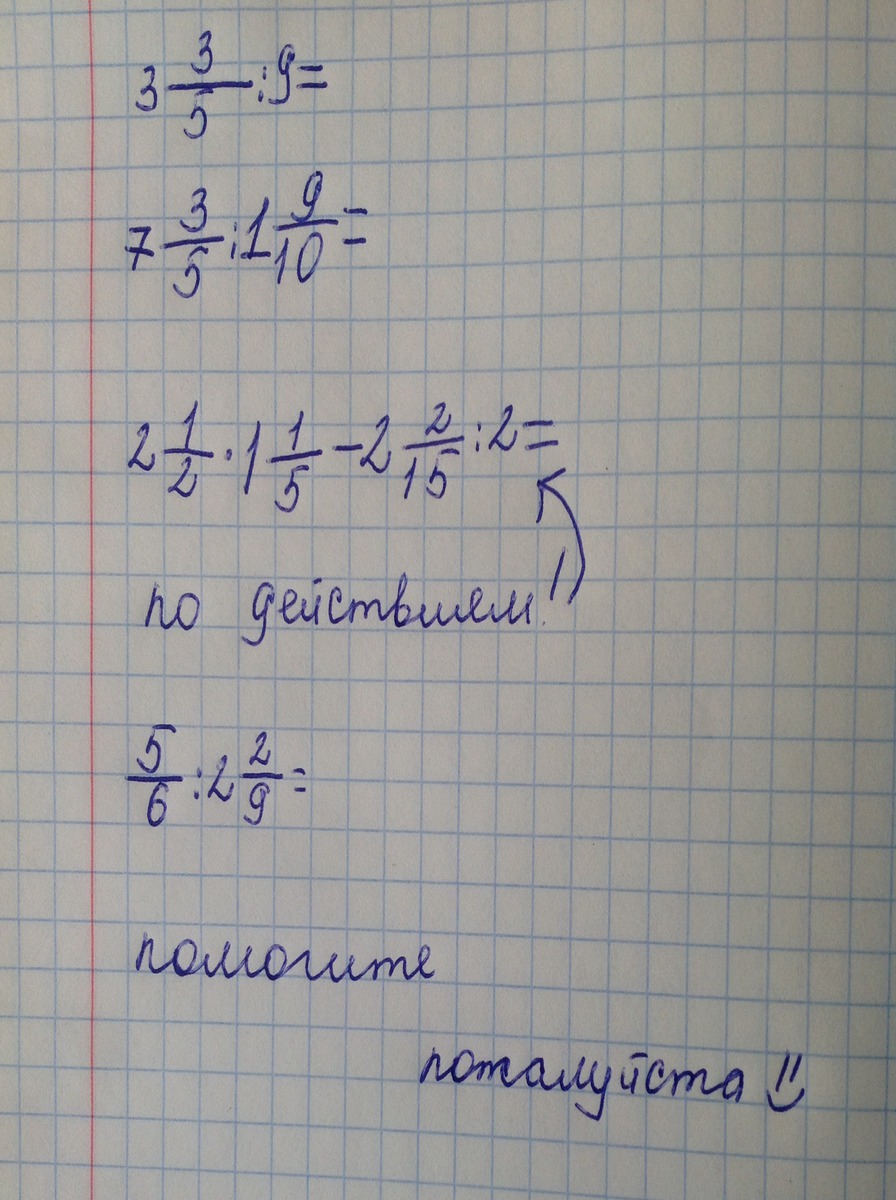 3 3/5 : 9 =
7 3/5 : 1 9/10 =
2 1/2 · 1 1/5 - 2 2/15 : 2 =
по действиям!
5/6 : 2 2/9 =
помогите
пожалуйста